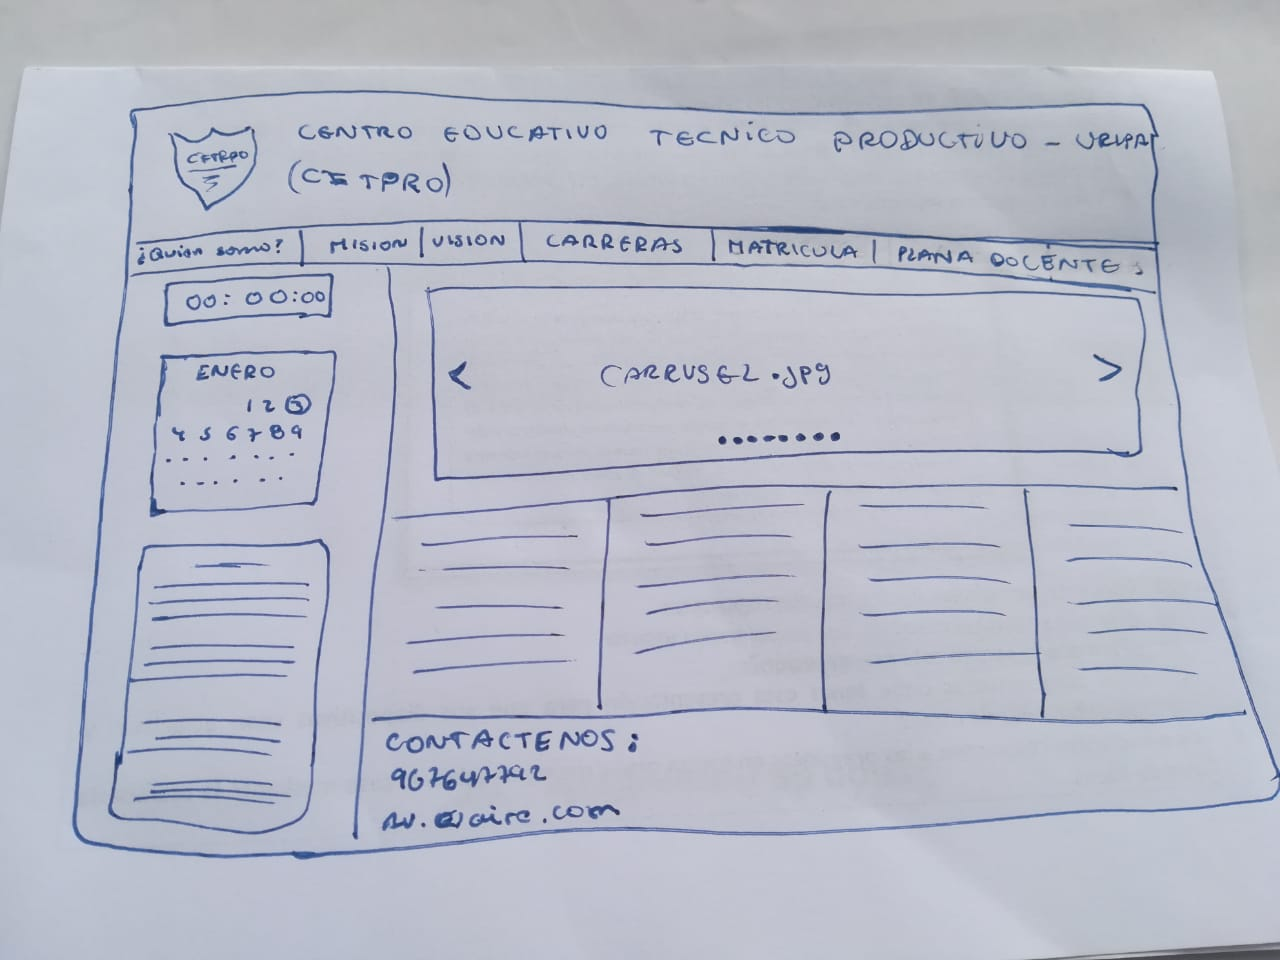 CETRPO
CENTRO EDUCATIVO TECNICO PRODUCTIVO - URIPA
(CETPRO)
¿Quien somo? MISION VISION CARRERAS MATRICULA PLANA DOCENTE
00:00:00
ENERO
1 2 3
4 5 6 7 8 9
< CARRUSEL.JPG >
CONTACTENOS:
967647792